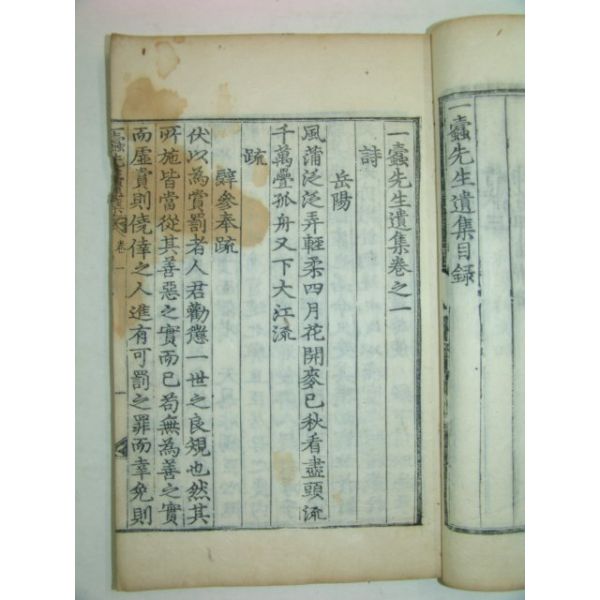 一蠹先生遺集目録
一蠹先生遺集卷之一
詩
岳陽
風蒲泛泛弄輕柔四月花開麥已秋看盡頭流
千萬疊孤舟又下大江流
疏
辭參奉疏
伏以為賞罰者人君勸懲一世之良規也然其
所施皆當從其善惡之實而已苟無為善之實
而虛賞則僥倖之人進有可罰之罪而幸免則
卷一
一